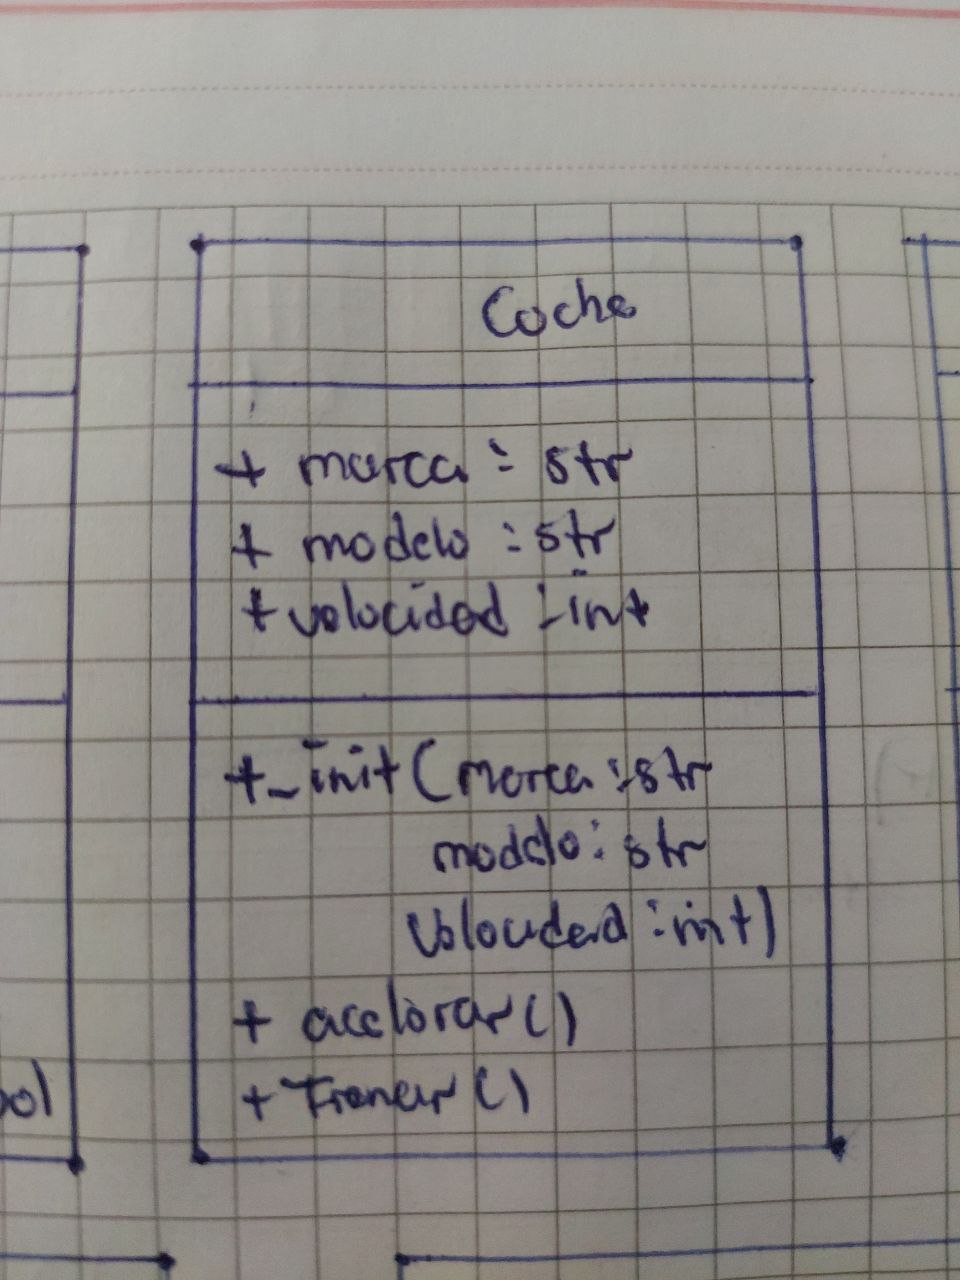 Coche
+ marca : str
+ modelo : str
+ velocidad : int
+_init (marca : str
modelo : str
Velocidad : int)
+ acelerar ()
+ Frenar ()
ool